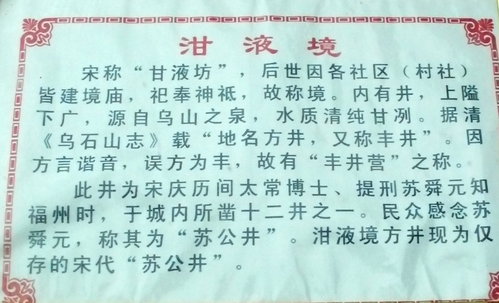 泔液境
宋称“甘液坊”，后世因各社区（村社）
皆建境庙，祀奉神祇，故称境。内有井，上隘
下广，源自乌山之泉，水质清纯甘冽。据清
《乌石山志》载“地名方井，又称丰井”。因
方言谐音，误方为丰，故有“丰井营”之称。
此井为宋庆历间太常博士、提刑苏舜元知
福州时，于城内所凿十二井之一。民众感念苏
舜元，称其为“苏公井”。泔液境方井现为仅
存的宋代“苏公井”。